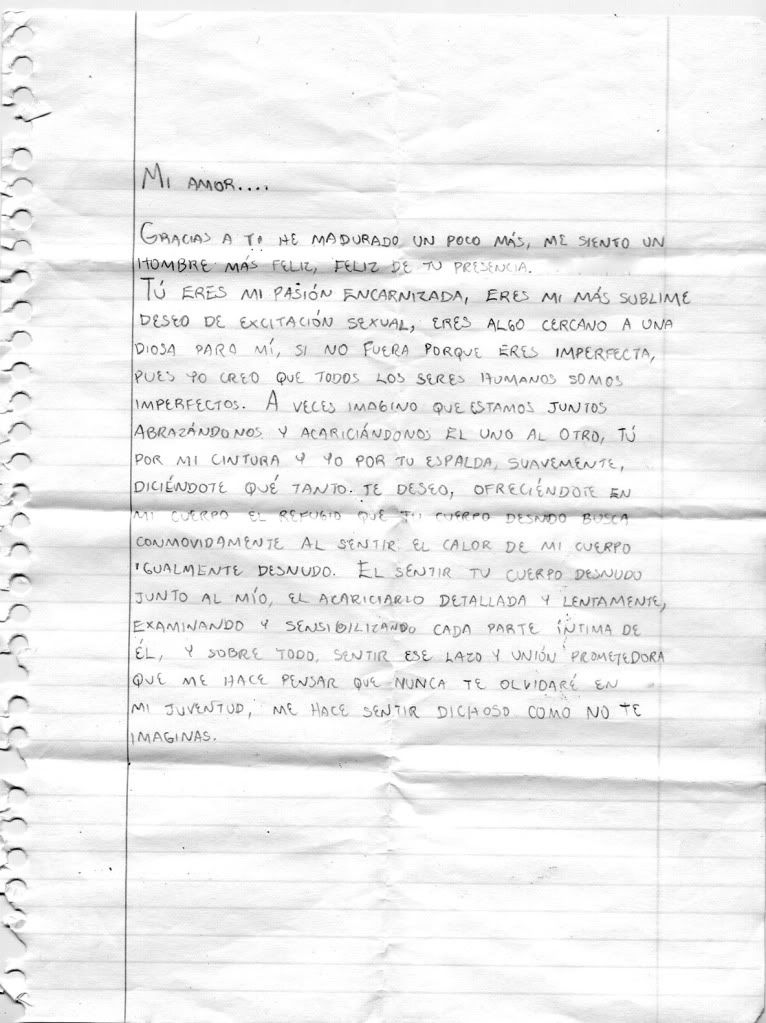 Mi amor....
Gracias a ti he madurado un poco más, me siento un
hombre más feliz, feliz de tu presencia.
Tú eres mi pasión encarnizada, eres mi más sublime
deseo de excitación sexual, eres algo cercano a una
diosa para mí, si no fuera porque eres imperfecta,
pues yo creo que todos los seres humanos somos
imperfectos. A veces imagino que estamos juntos
abrazándonos y acariciándonos el uno al otro, tú
por mi cintura y yo por tu espalda, suavemente,
diciéndote qué tanto te deseo, ofreciéndote en
mi cuerpo el refugio que tu cuerpo desnudo busca
conmovidamente al sentir el calor de mi cuerpo
igualmente desnudo. El sentir tu cuerpo desnudo
junto al mío, el acariciarlo detallada y lentamente,
examinando y sensibilizando cada parte íntima de
él, y sobre todo, sentir ese lazo y unión prometedora
que me hace pensar que nunca te olvidaré en
mi juventud, me hace sentir dichoso como no te
imaginas.